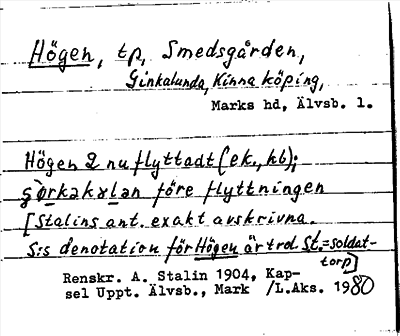 Högen, tp, Smedsgården,
Ginkalunda, Kinna köping,
Marks hd, Älvsb. l.
Högen 2 nu flyttadt (ek., hb);
före flyttningen
[Stalins ant. exakt avskrivna.
S:s denotation för Högen är trol St.=soldat-
torp]
Renskr. A. Stalin 1904, Kap-
sel Uppt. Älvsb., Mark /L.Aks. 1980